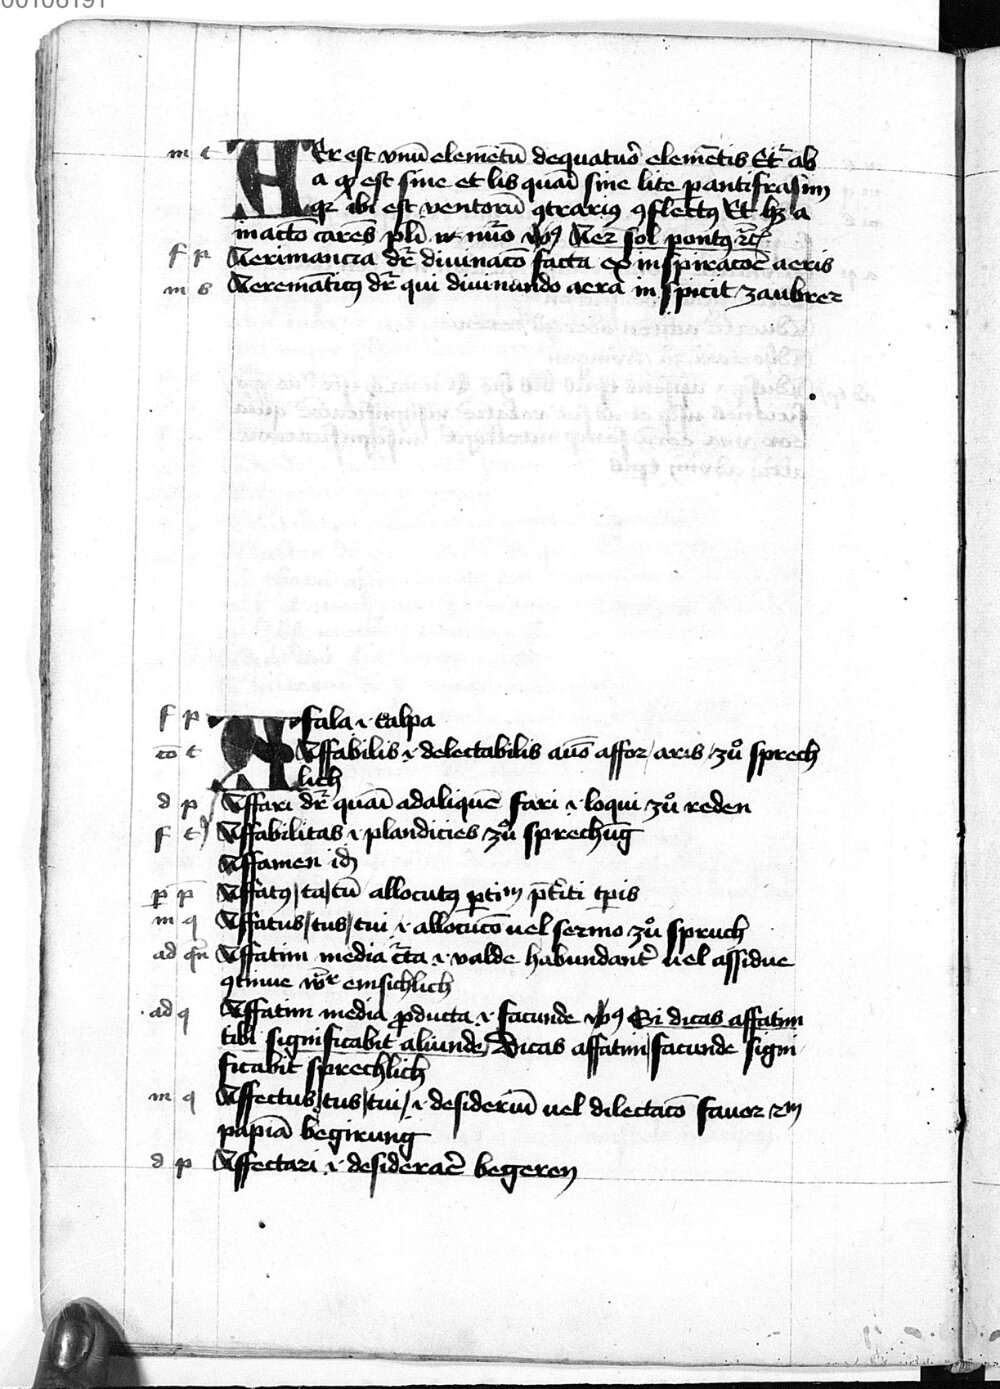 00106191
m t AEr est vnū elemētū dequatuor elemētis Et ab
a qd est sine et lis quasi sine lite pantifrasim
qr ibi est ventorū ꝯtrariꝯ ꝯflectꝯ Et hꝫ a
in actō carens pli nūo Aer sol pontꝯ
f p Aerimancia dr̄ diuinacō facta ex inspiracōe aeris
m s Aeremāticꝯ dr̄ qui diuinando aera in spicit zaubrer
f p Afala .i. talpa
cō t Affabilis .i. delectabilis affor / aris / zů sprech
lich
d p Affari dr̄ quasi adaliquē fari .i. loqui zů reden
f t Affabilitas .i. plandicies zů sprechūg
Affamen idē
p p Affatꝯ / ta / tū allocutꝯ tpis
m q Affatus / tus / tui .i. allocucō uel sermo zů spruch
ad qn Affatim media .i. valde habundant̄ uel assidue
ꝯtinue emsichlich
ad q Affatim media ꝓducta .i. facunde Si dicas affatim
tibi significabit aliunde / Dicas affatim / facunde signi
ficabit sprechlich
m q Affectus / tus / tui / .i. desideriū uel dilectacō fauor
papiā begirung
d p Affectari .i. desiderar̄ begeren